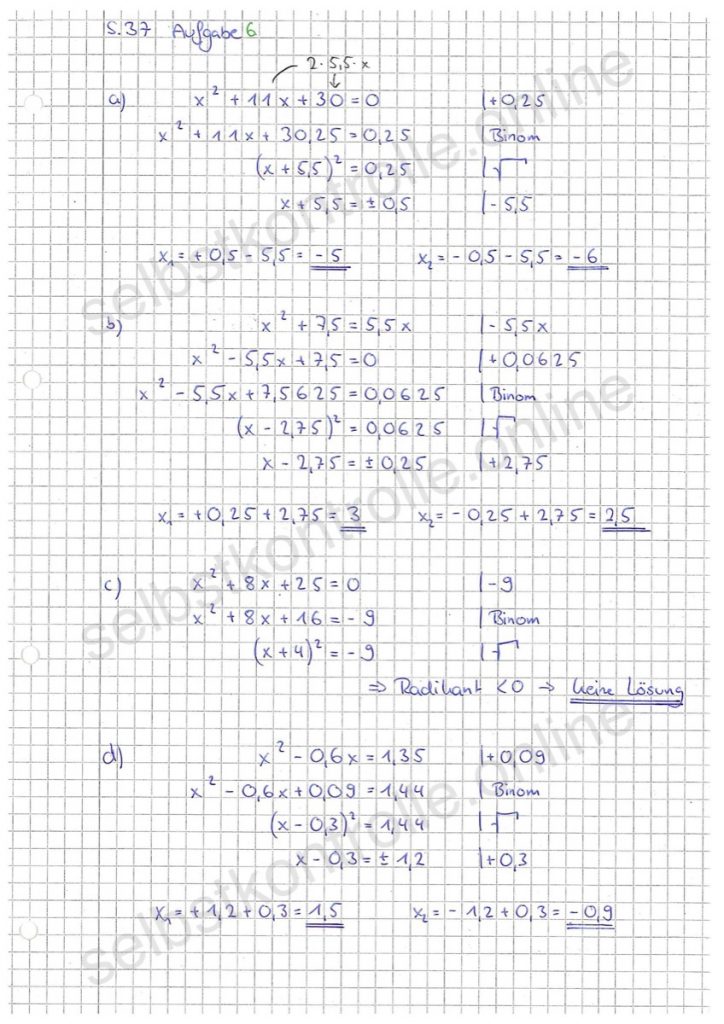 S.37 Aufgabe 6
2·5,5·x
a) x² + 11x + 30 = 0 | +0,25
x² + 11x + 30,25 = 0,25 | Binom
(x + 5,5)² = 0,25 | √
x + 5,5 = ± 0,5 | - 5,5
x₁ = + 0,5 - 5,5 = - 5 x₂ = - 0,5 - 5,5 = - 6
b) x² + 7,5 = 5,5x | - 5,5x
x² - 5,5x + 7,5 = 0 | + 0,0625
x² - 5,5x + 7,5625 = 0,0625 | Binom
(x - 2,75)² = 0,0625 | √
x - 2,75 = ± 0,25 | + 2,75
x₁ = + 0,25 + 2,75 = 3 x₂ = - 0,25 + 2,75 = 2,5
c) x² + 8x + 25 = 0 | - 9
x² + 8x + 16 = - 9 | Binom
(x + 4)² = - 9 | √
⇒ Radikant < 0 → keine Lösung
d) x² - 0,6x = 1,35 | + 0,09
x² - 0,6x + 0,09 = 1,44 | Binom
(x - 0,3)² = 1,44 | √
x - 0,3 = ± 1,2 | + 0,3
x₁ = + 1,2 + 0,3 = 1,5 x₂ = - 1,2 + 0,3 = - 0,9
selbstkontrolle.online
selbstkontrolle.online
selbstkontrolle.online